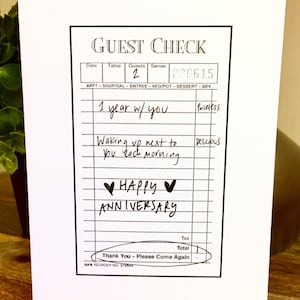 GUEST CHECK
Date Table Guests Server
2 220615
APPT - SOUP/SAL - ENTREE - VEG/POT - DESSERT - BEV
1 year w/ you PRICELESS
Waking up next to DELICIOUS
you each morning
HAPPY
ANNIVERSARY
Tax
Total
Thank You - Please Come Again